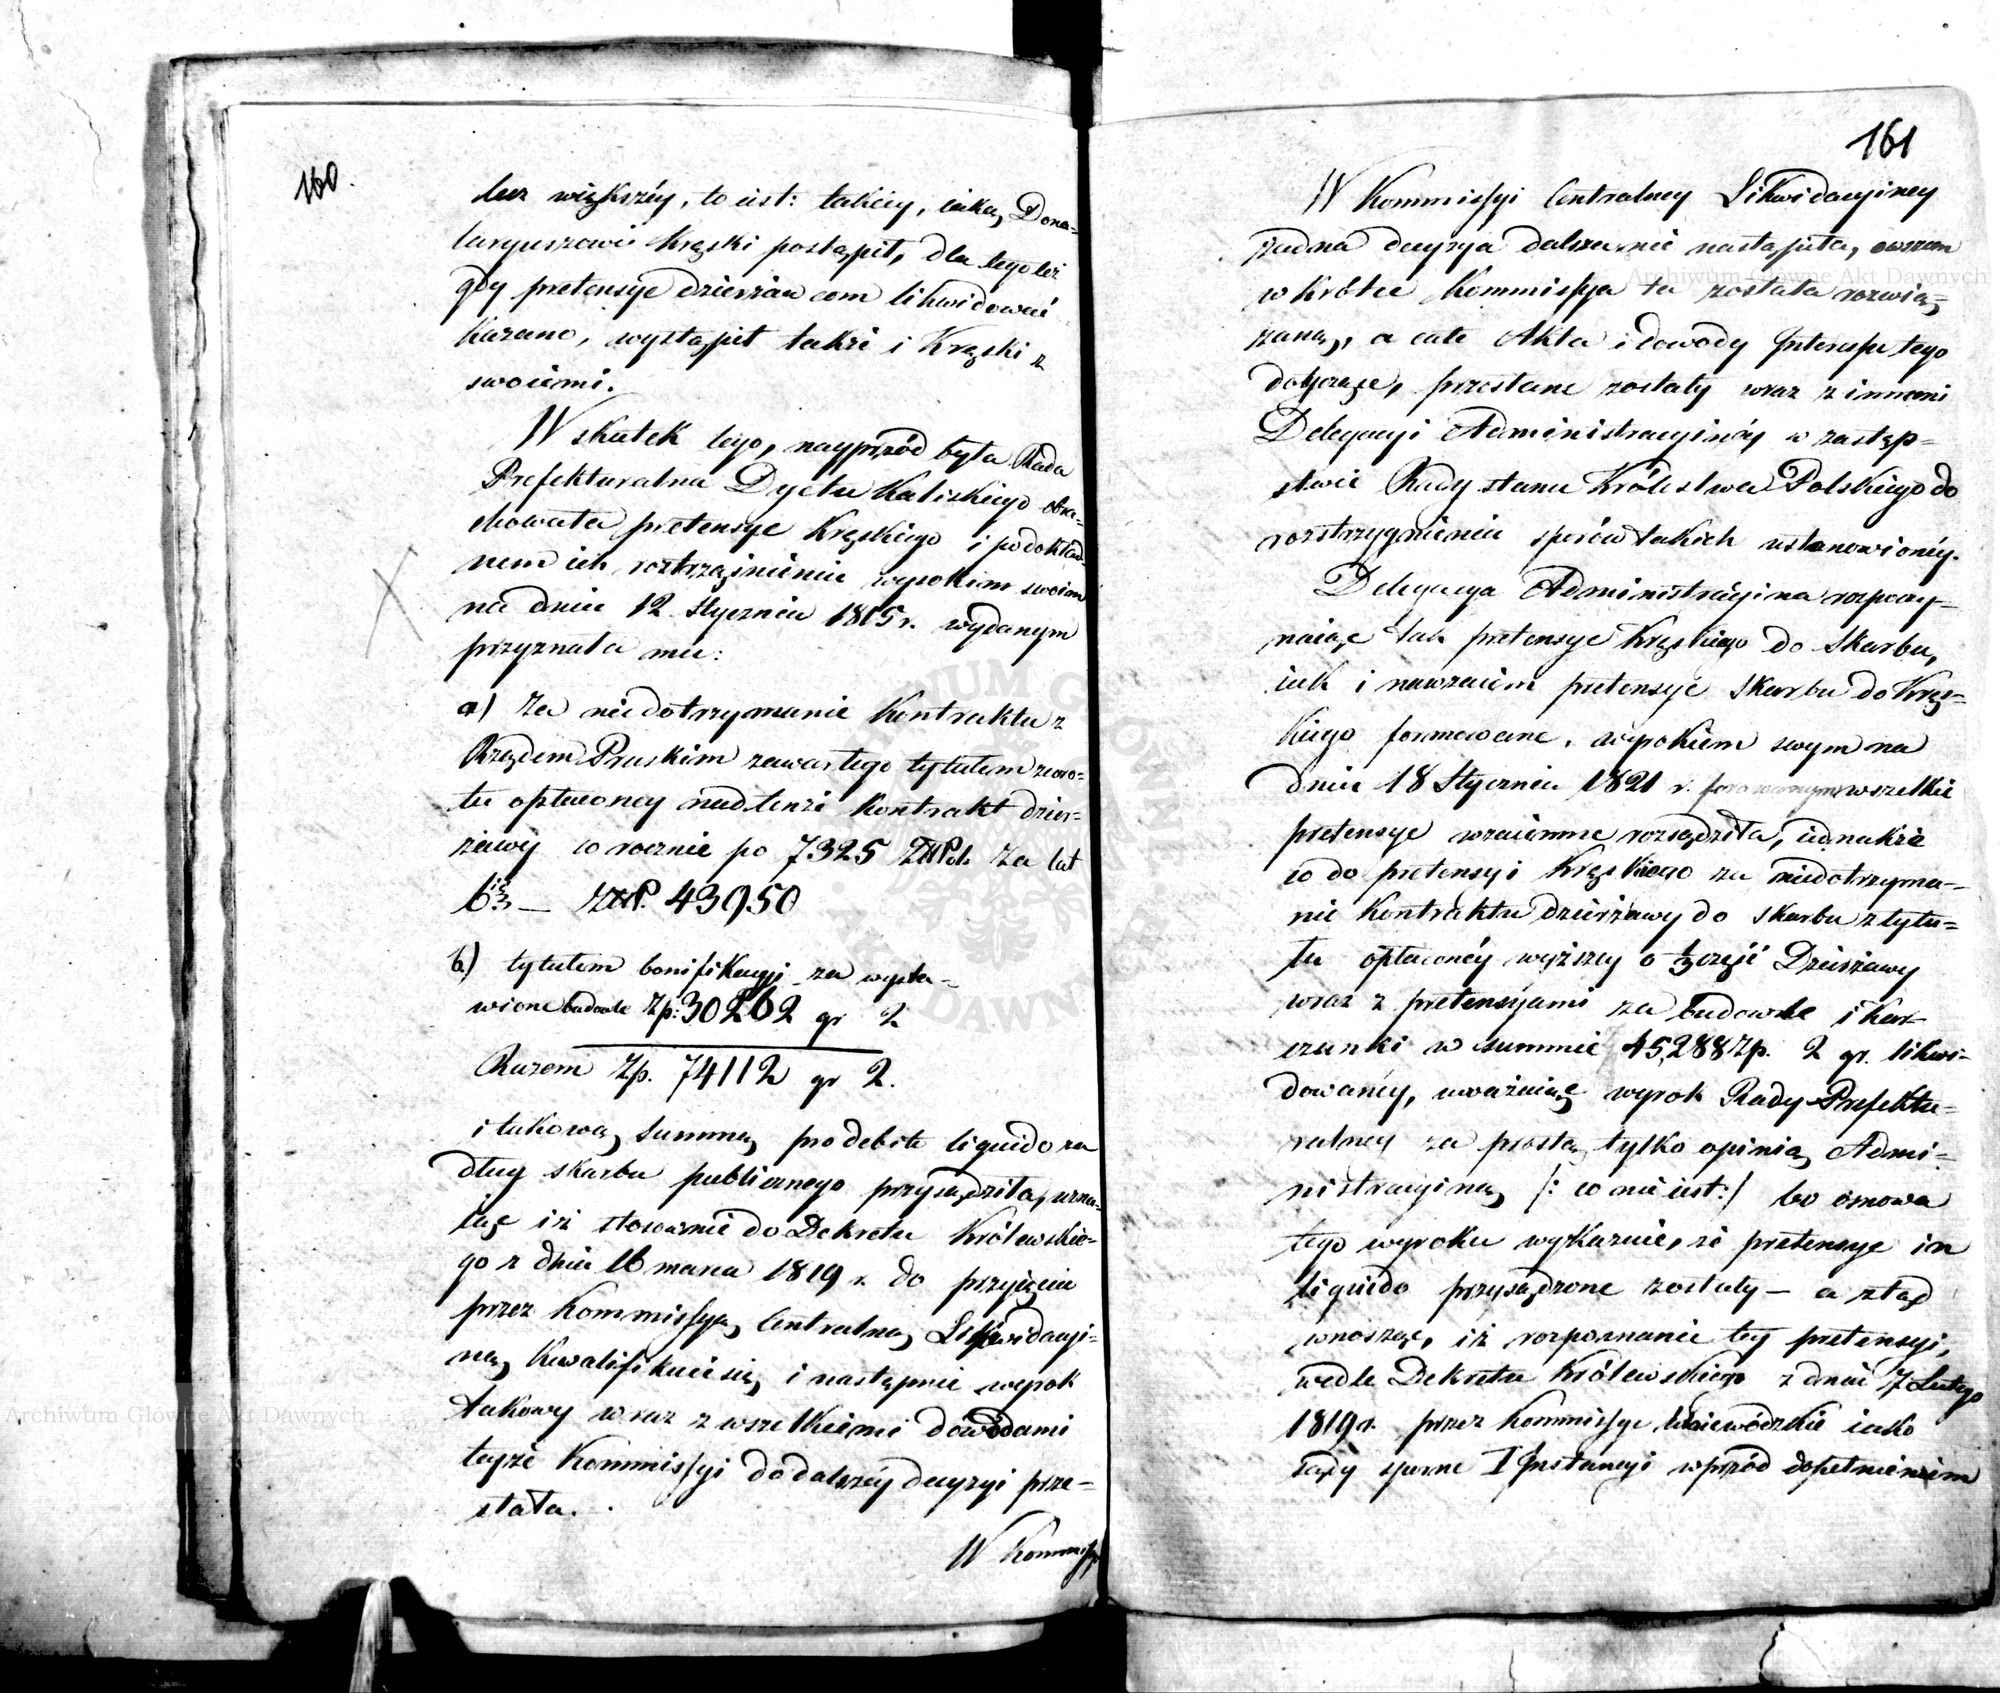 160.
lecz większéy, to iest: takiéy, iaką Dona=
taryuszowi Kręski postąpił, dla tego też
gdy pretensye dzierżawcom likwidować
kazano, wystąpił także i Kręski z
swoiemi.
W skutek tego, nayprzód była Rada
Prefekturalna Dptu Kaliskiego obra=
chowała pretensye Kręskiego i po dokład=
nem ich roztrząśnieniu wyrokiem swoim
na dniu 12 Stycznia 1815 r. wydanym
przyznała mu:
a) Za niedotrzymanie kontraktu z
Rządem Pruskim zawartego tytułem zwro=
tu opłaconey nadtenże kontrakt dzier=
żawy co rocznie po 7325 ZłPol. za lat
6ść — ZłP. 43950
b.) tytułem bonifikacyi za wysta=
wione budowle Zp: 30262 gr 2
Razem Zp. 74112 gr 2.
i takową summę pro debito liquido za
dług skarbu publicznego przysądziła, uzna=
iąc iż stosownie do Dekretu Królewskie=
go z dnia 16 marca 1819 r. do przyięcia
przez Kommissyą Centralną Likwidacyi=
ną kwalifikuie się, i następnie wyrok
takowy wraz z wszelkiemi dowodami
teyże Kommissyi do dalszéy decyzyi prze=
słała.
W Kommissyi
161
W Kommissyi Centralney Likwidacyiney
żadna decyzya dalsza nie nastąpiła, owszem
w krótce Kommissya ta została rozwią=
zaną, a całe Akta i dowody Interessu tego
dotyczące, przesłane zostały wraz z innemi
Delegacyi Administracyinéy w zastęp=
stwie Rady stanu Królestwa Polskiego do
rozstrzygnienia sporów takich ustanowionéy.
Delegacya Administracyina rozpozy=
naiąc tak pretensye Kręskiego do Skarbu,
iak i nawzaiem pretensye Skarbu do Kręs=
kiego formowane, wyrokiem swym na
dniu 18 Stycznia 1821 r. wszelkie
pretensye wzaiemne rozsądziła, iednakże
co do pretensyi Kręskiego za niedotrzyma=
nie kontraktu dzierżawy do skarbu z tytu=
łu opłaconéy wyższey o ⅓ część Dzierżawy
wraz z pretensyami za budowle i Kar=
czunki w summie 45,288 Zp. 2 gr. likwi=
dowanéy, uważaiąc wyrok Rady Prefektu=
ralney za prostą tylko opinią Admi=
nistracyiną /: co nie iest :/ bo osnowa
tego wyroku wykazuie, że pretensye in
liquido przysądzone zostały — a ztąd
wnosząc, iż rozpoznanie tey pretensyi,
wedle Dekretu Królewskiego z dnia 7 Lutego
1819 r. przez Kommissye Woiewódzkie iako
sądy sporne I Instancyi wprzód dopełnionem